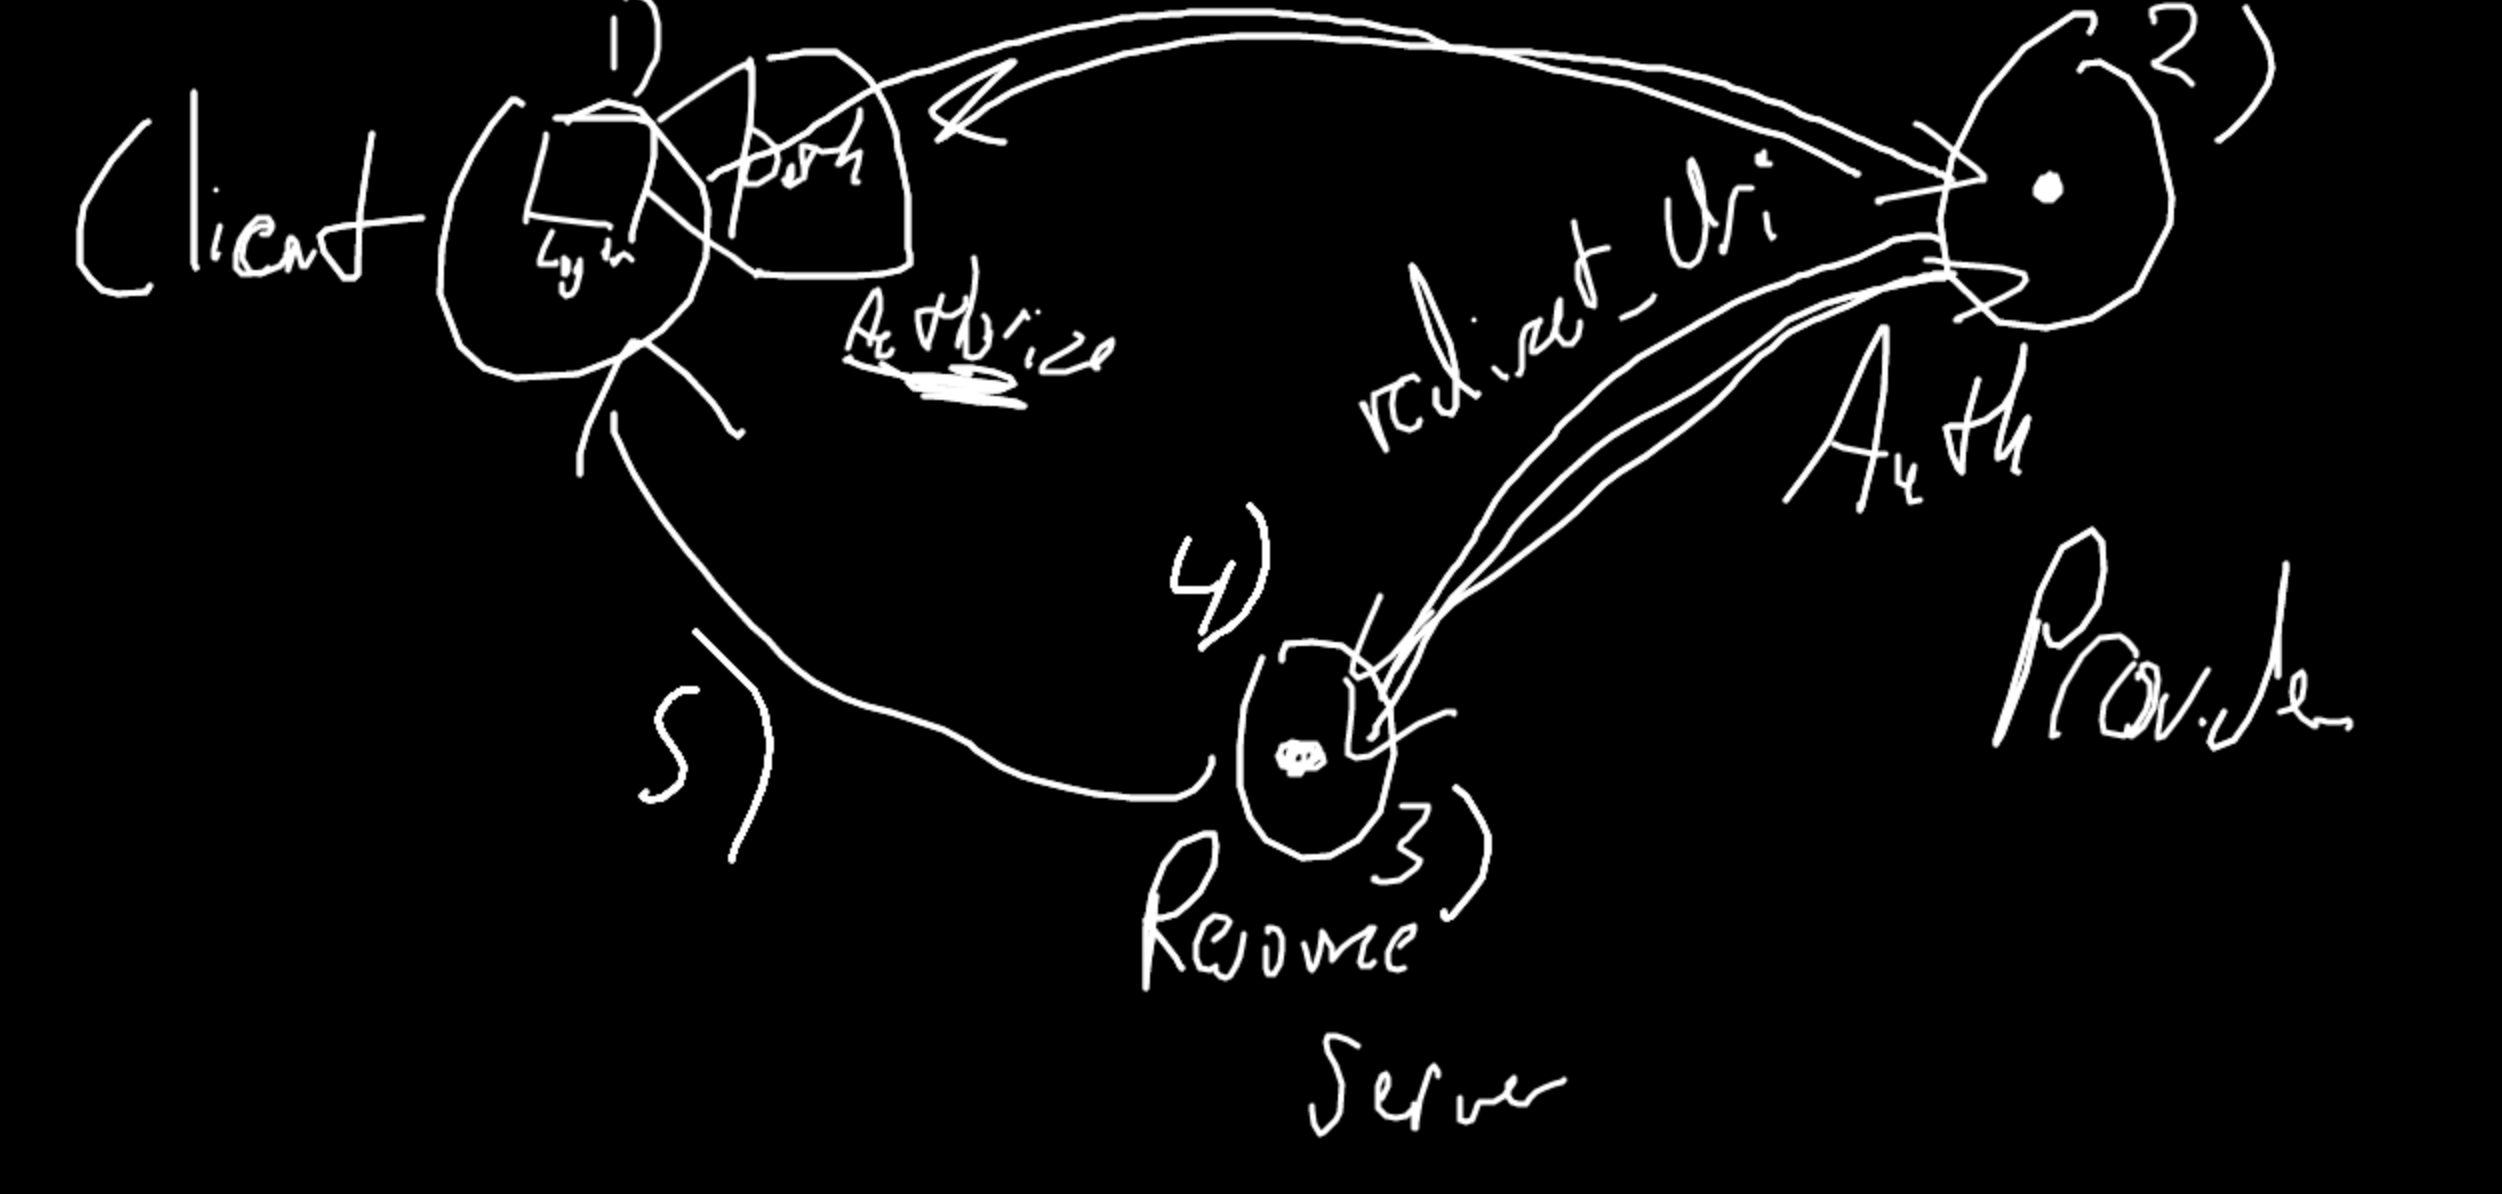 1)
2)
Client
Login
Authorize
redirect_Uri
Auth
Provider
4)
5)
3)
Resource
Server